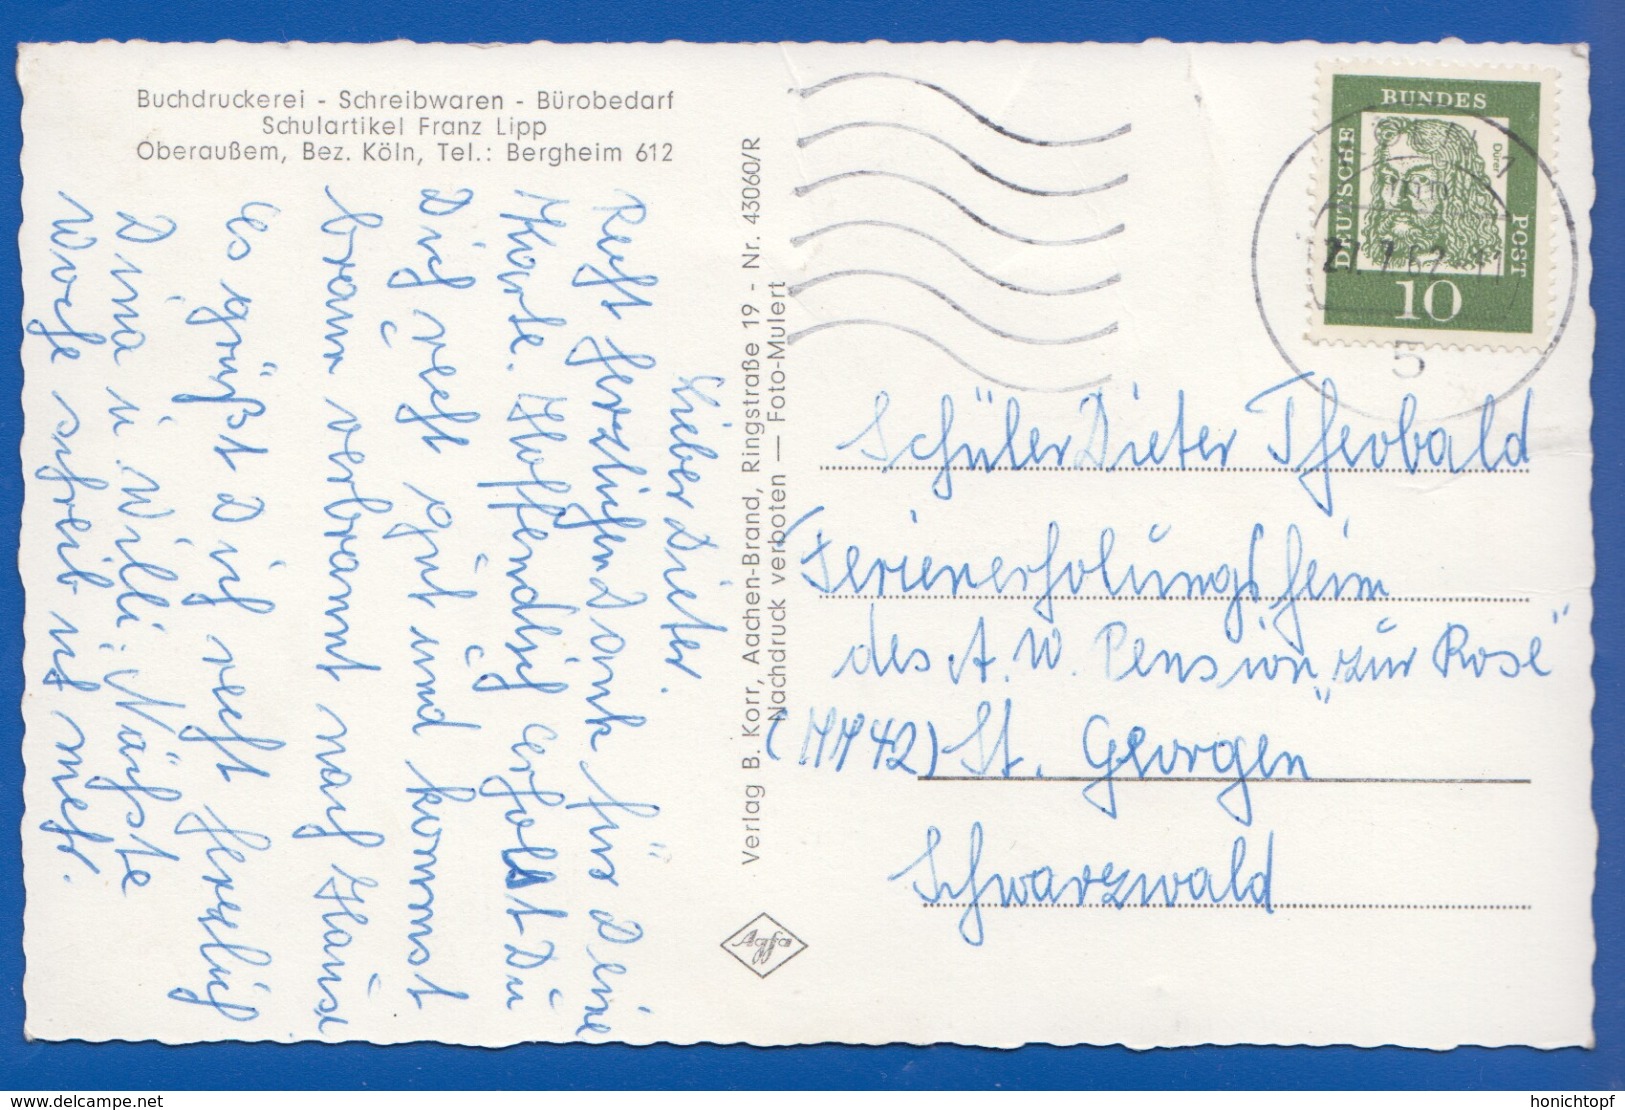 Buchdruckerei - Schreibwaren - Bürobedarf
Schulartikel Franz Lipp
Oberaußem, Bez. Köln, Tel.: Bergheim 612
Lieber Dieter.
Recht herzlichen Dank für Deine
Karte. Hoffendlich erholst Du
Dich recht gut und kommst
braun verbrannt nach Hause
Es grüßt Dich recht herzlich
Dina u. Willi. Nächste
Woche schreib ich mehr.
Verlag B. Korr, Aachen-Brand, Ringstraße 19 - Nr. 43060/R
Nachdruck verboten — Foto-Mulert
Agfa
DEUTSCHE BUNDES POST
Dürer
10
5
Schüler Dieter Theobald
Ferienerholungsheim
des A. W. Pension „zur Rose“
(7742) St. Georgen
Schwarzwald
delcampe.net
honichtopf